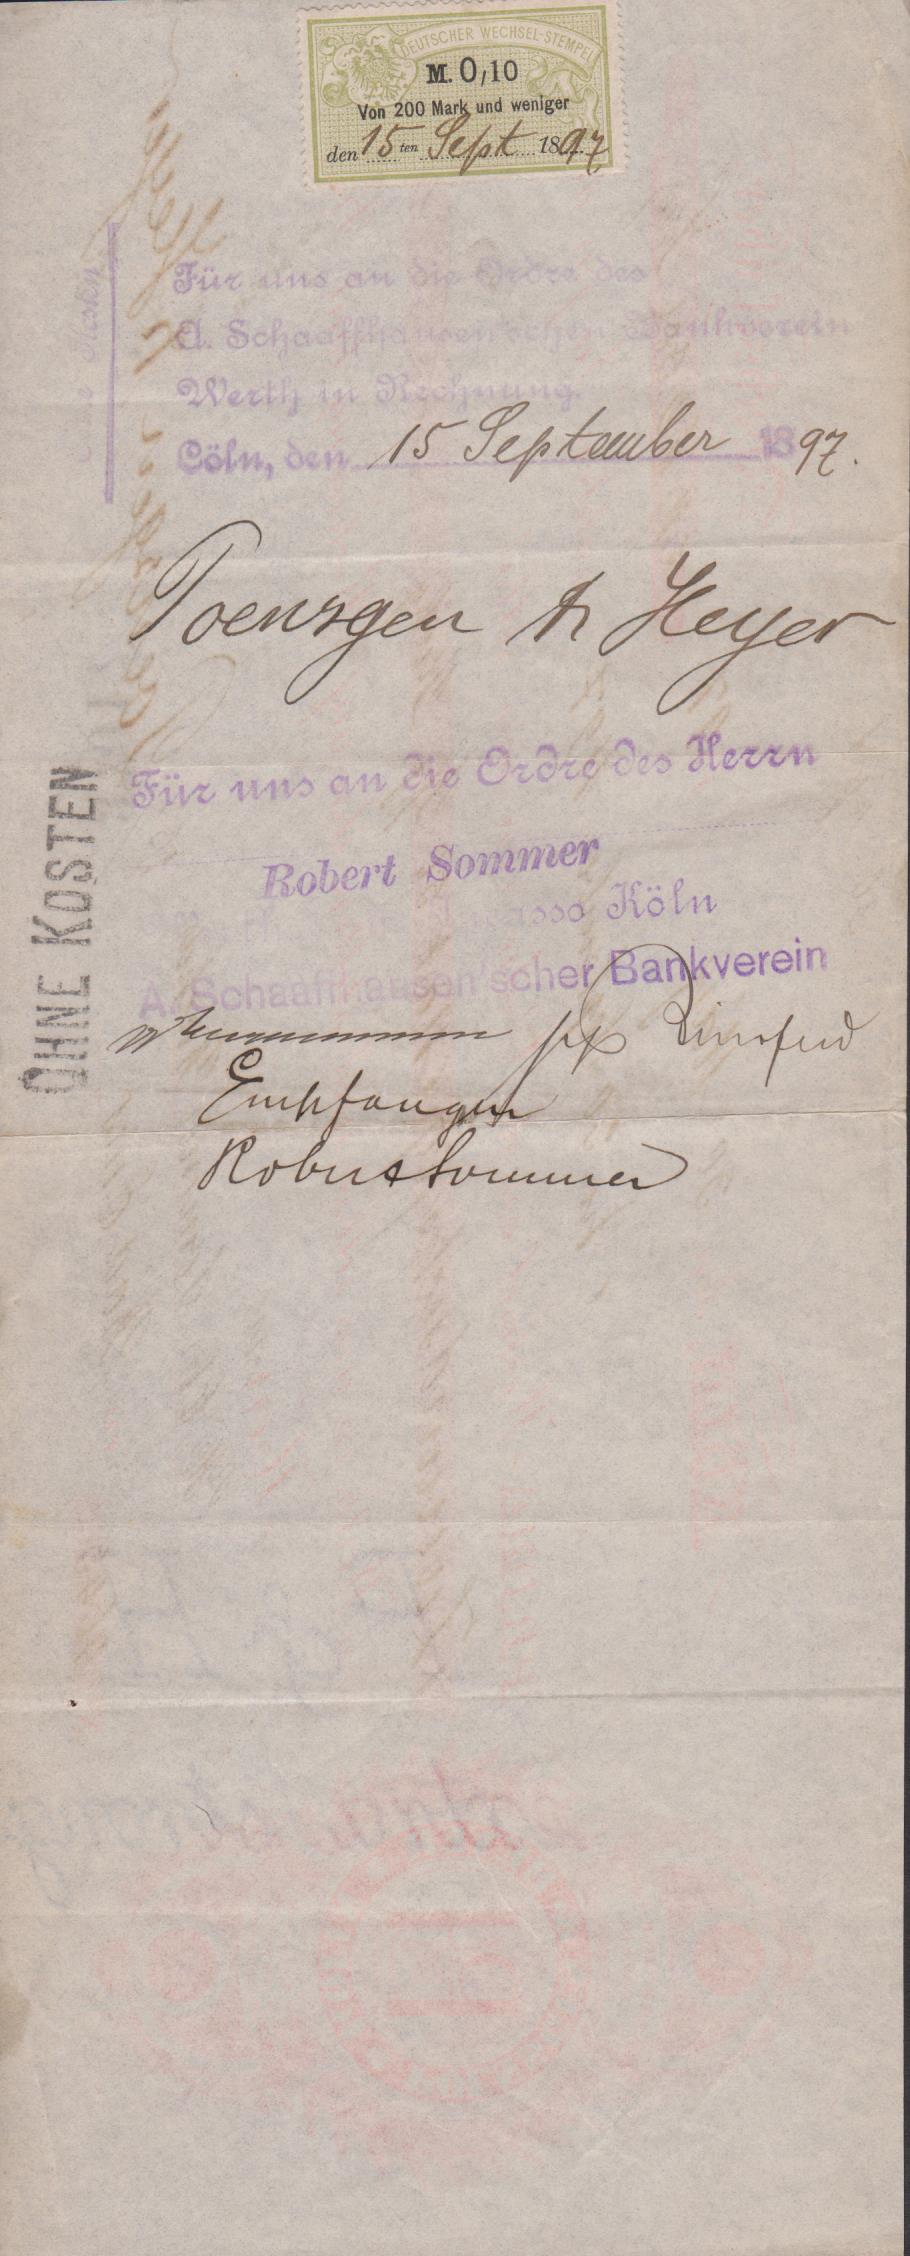 DEUTSCHER WECHSEL-STEMPEL
M. 0,10
Von 200 Mark und weniger
den 15 ten Sept 1897
Für uns an die Ordre des
A. Schaaffhausen'schen Bankverein
Werth in Rechnung.
Cöln, den 15 September 1897.
Poensgen & Heyer
OHNE KOSTEN
Für uns an die Ordre des Herrn
Robert Sommer
Incasso Köln
A. Schaaffhausen'scher Bankverein
ppa
Empfangen
Robert Sommer